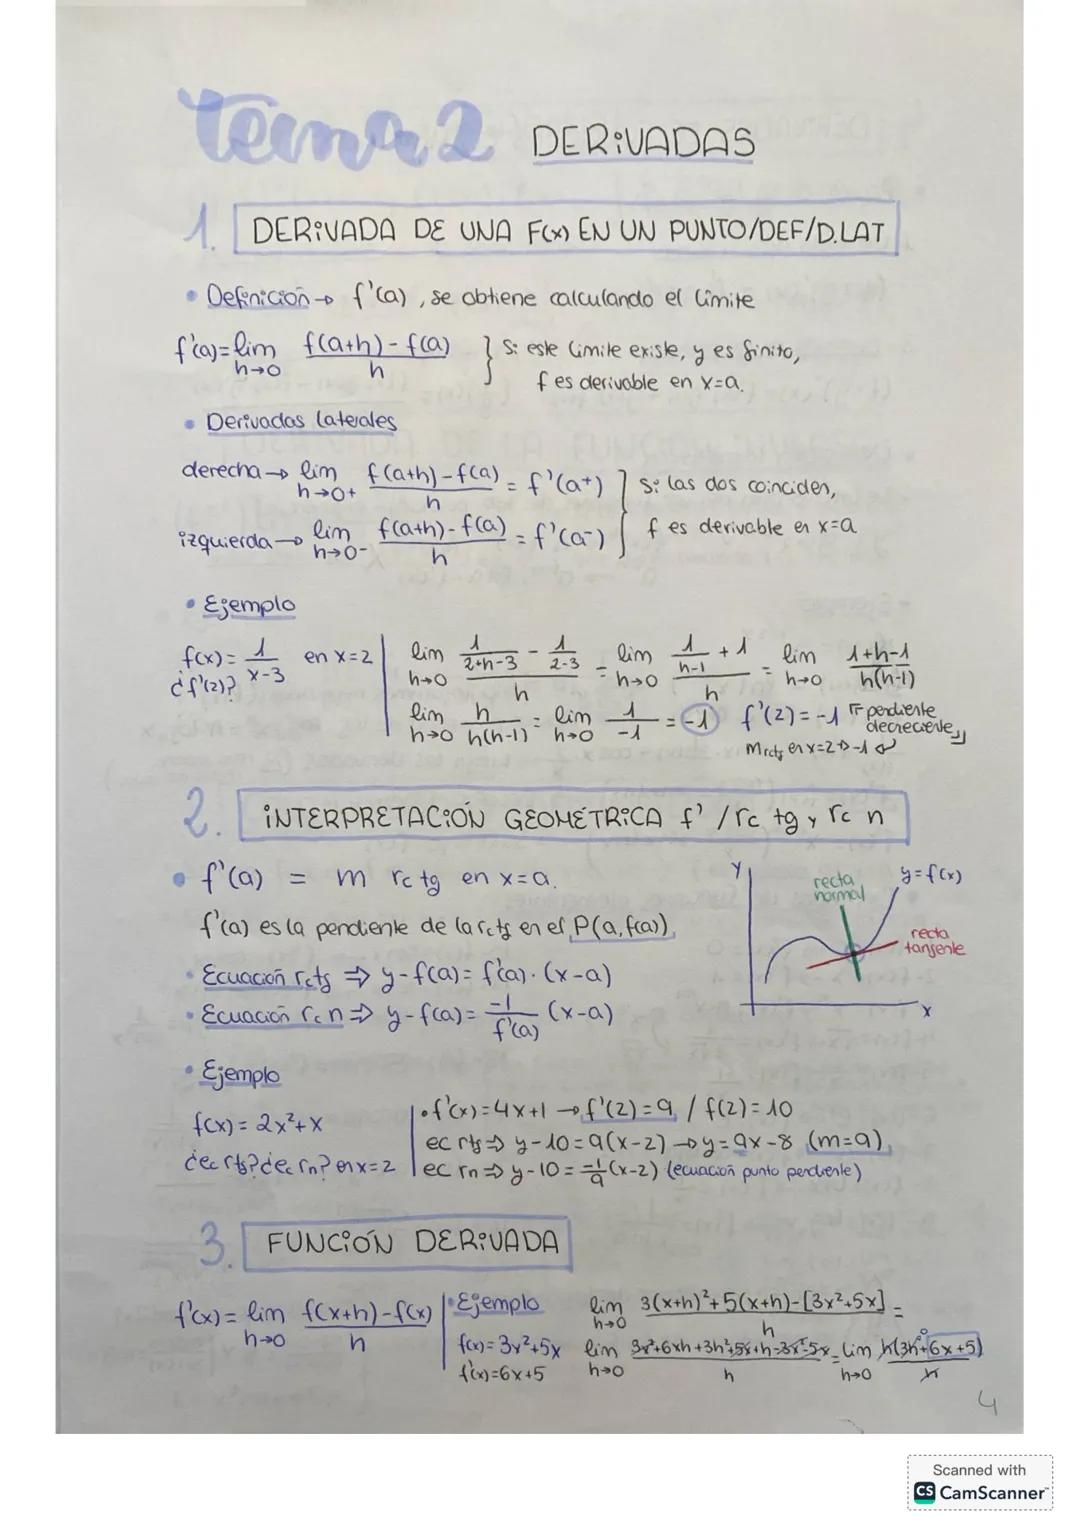 Tema 2 DERIVADAS
1. DERIVADA DE UNA F(x) EN UN PUNTO/DEF/D.LAT
• Definición → f'(a), se obtiene calculando el límite
f'(a)= lim h→0 (f(a+h)-f(a))/h } Si este límite existe, y es finito,
f es derivable en x=a.
• Derivadas laterales
derecha → lim h→0+ (f(a+h)-f(a))/h = f'(a+) } Si las dos coinciden,
izquierda → lim h→0- (f(a+h)-f(a))/h = f'(a-) } f es derivable en x=a
• Ejemplo
f(x)= 1/(x-3) en x=2 | lim h→0 (1/(2+h-3) - 1/(2-3))/h = lim h→0 (1/(h-1) + 1)/h = lim h→0 (1+h-1)/(h(h-1))
¿f'(2)?
lim h→0 h/(h(h-1)) = lim h→0 1/-1 = -1 f'(2)=-1 pendiente
decreciente
m rctg en x=2 → -1
2. INTERPRETACIÓN GEOMÉTRICA f' / rc tg y rc n
• f'(a) = m rc tg en x=a.
f'(a) es la pendiente de la rctg en el P(a,f(a))
• Ecuación rctg ⇒ y-f(a)= f'(a)·(x-a)
• Ecuación rc n ⇒ y-f(a)= -1/f'(a) (x-a)
Y
recta
normal
y=f(x)
recta
tangente
x
• Ejemplo
f(x)= 2x²+x
¿ec rtg? ¿ec rn? en x=2
• f'(x)=4x+1 → f'(2)=9 / f(2)=10
ec rtg ⇒ y-10=9(x-2) → y=9x-8 (m=9)
ec rn ⇒ y-10= -1/9 (x-2) (ecuación punto pendiente)
3. FUNCIÓN DERIVADA
f'(x)= lim h→0 (f(x+h)-f(x))/h
• Ejemplo
f(x)=3x²+5x
f'(x)=6x+5
lim h→0 (3(x+h)²+5(x+h)-[3x²+5x])/h =
lim h→0 (3x²+6xh+3h²+5x+h-3x²-5x)/h = lim h→0 h(3h+6x+5)/h
0
4
Scanned with
CS CamScanner™